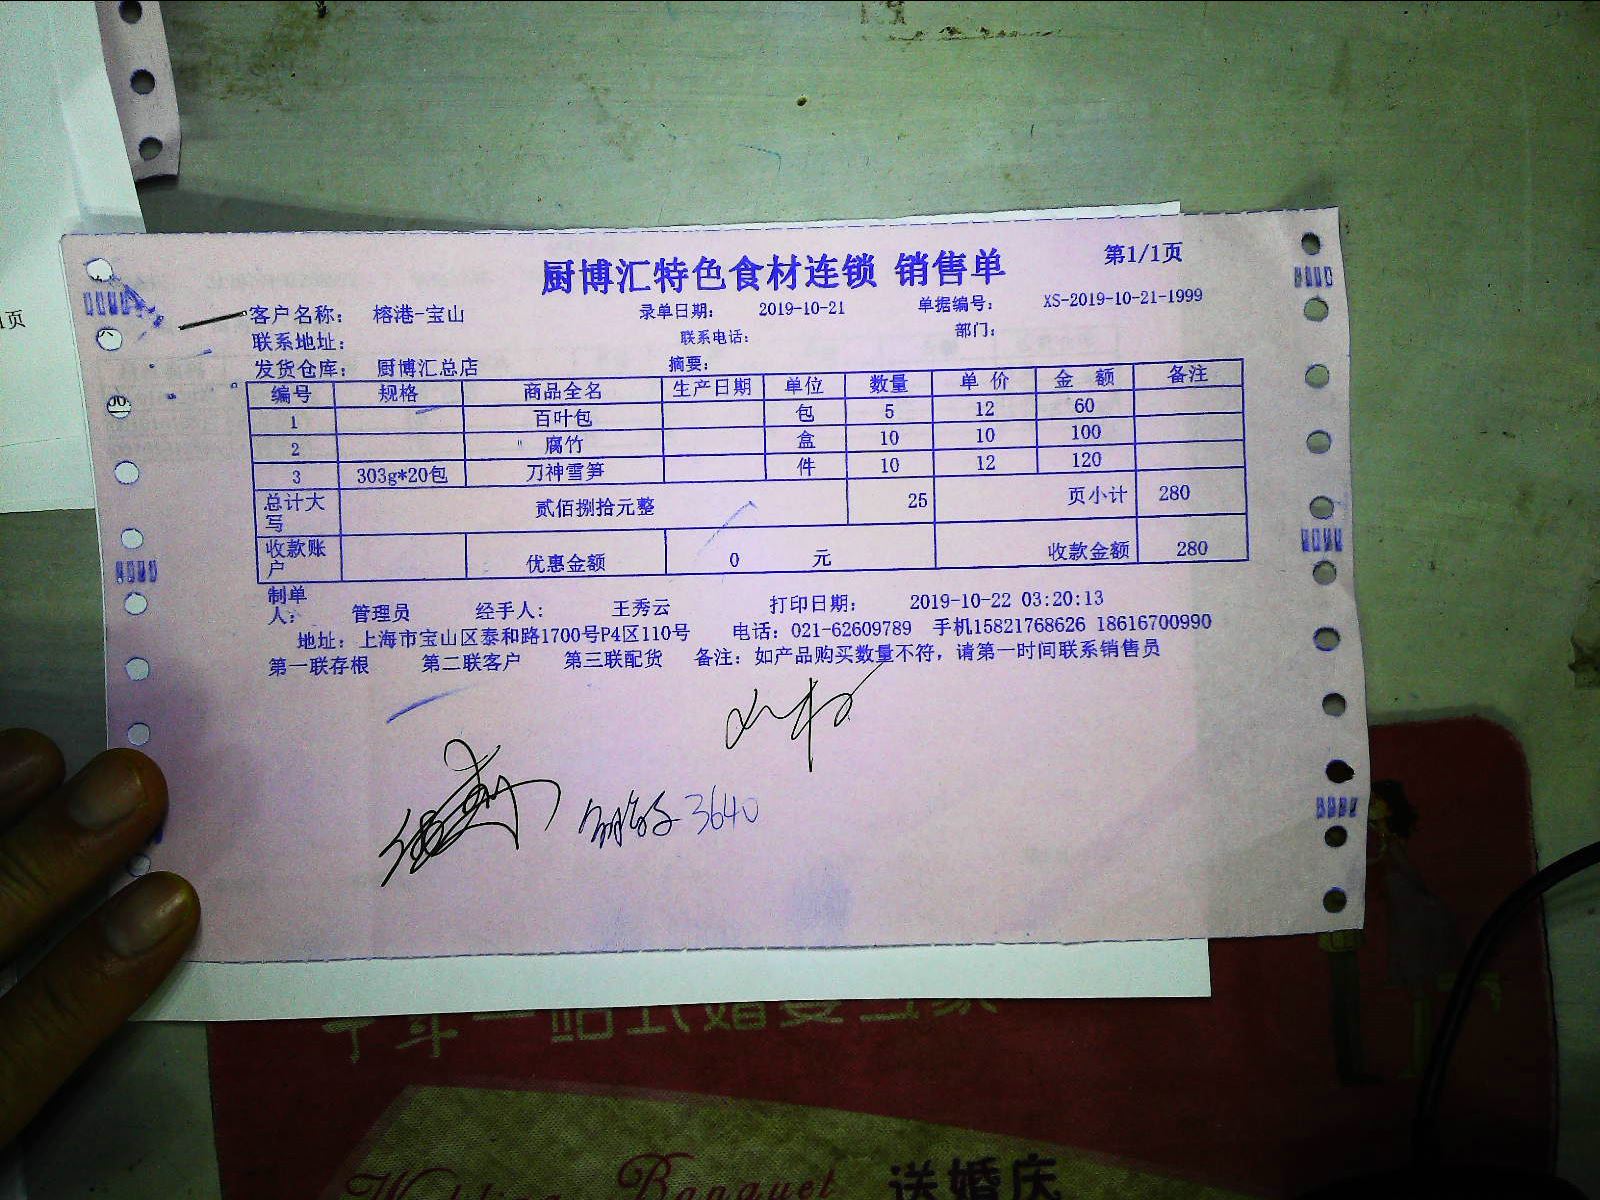 厨博汇特色食材连锁 销售单 第1/1页
客户名称: 榕港-宝山 录单日期: 2019-10-21 单据编号: XS-2019-10-21-1999
联系地址: 联系电话: 部门:
发货仓库: 厨博汇总店 摘要:
编号 规格 商品全名 生产日期 单位 数量 单 价 金 额 备注
1 百叶包 包 5 12 60
2 腐竹 盒 10 10 100
3 303g*20包 刀神雪笋 件 10 12 120
总计大写 贰佰捌拾元整 25 页小计 280
收款账户 优惠金额 0 元 收款金额 280
制单人: 管理员 经手人: 王秀云 打印日期: 2019-10-22 03:20:13
地址: 上海市宝山区泰和路1700号P4区110号 电话: 021-62609789 手机15821768626 18616700990
第一联存根 第二联客户 第三联配货 备注: 如产品购买数量不符, 请第一时间联系销售员
3640
1页
Wedding Banquet 送婚庆